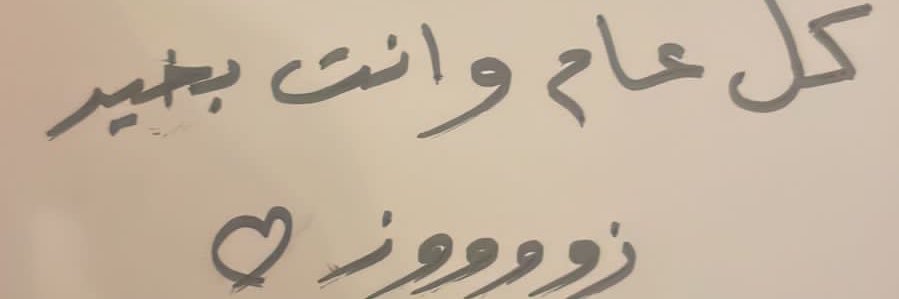 كل عام وانت بخير
زوووووز